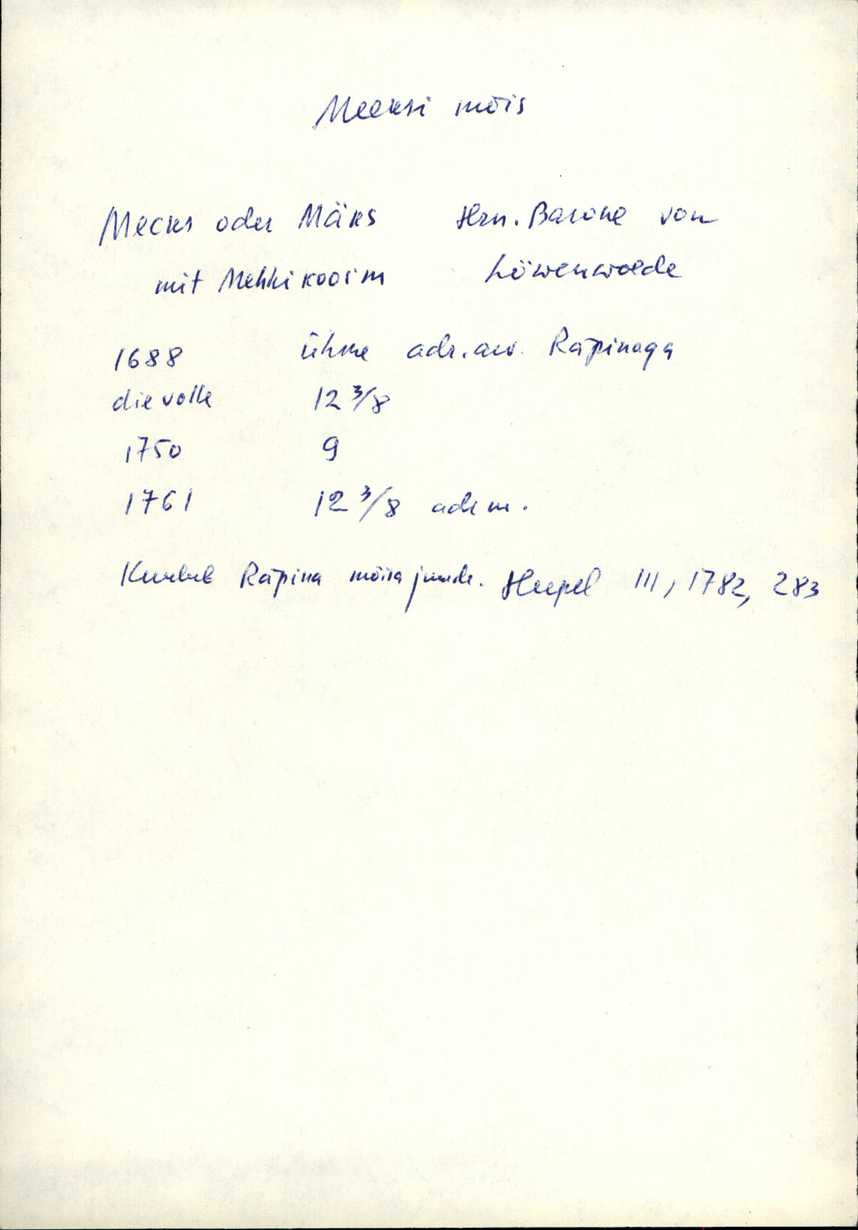 Meeksi mõis
Mecks oder Mäks Hrn. Barone von
mit Mehhikoorm Löwenwolde
1688 ühine adr. arv. Räpinaga
die volle 12 3/8
1750 9
1761 12 3/8 adr m.
Kuulub Räpina mõisa juurde. Hupel III, 1782, 283